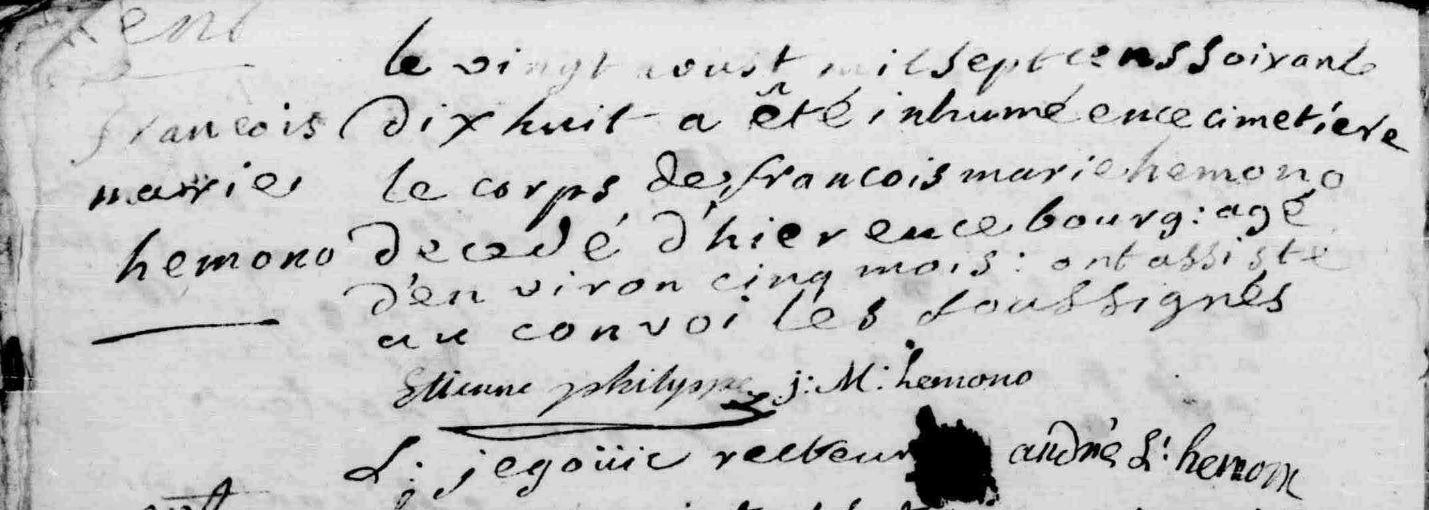 le vingt aoust mil sept cens soixante
françois dix huit a êté inhumé en ce cimetiére
marie le corps de francois marie hemono
hemono decedé d'hier en ce bourg: agé
d'environ cinq mois: ont assisté
au convoi les soussignés
Etienne philippe j: M: hemono
L: jegoüic recteur andré L: hemon